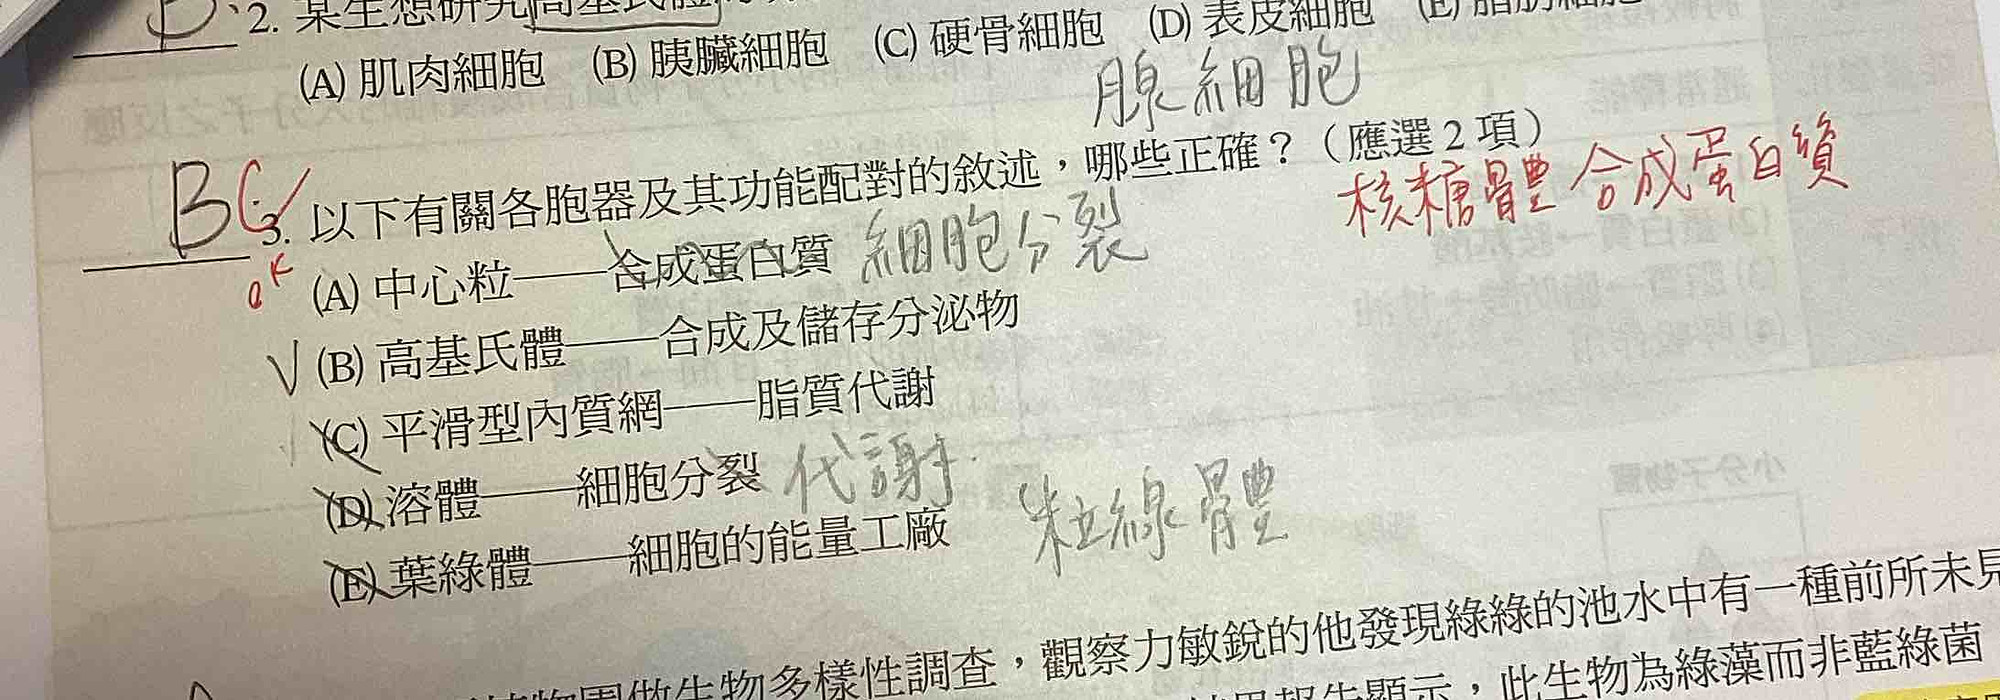 B、2. 某生想研究高基氏體
(A) 肌肉細胞 (B) 胰臟細胞 (C) 硬骨細胞 (D) 表皮細胞 (E) 脂肪細胞
腺細胞
BC 3. 以下有關各胞器及其功能配對的敘述，哪些正確？（應選 2 項）
核糖體 合成蛋白質
ok (A) 中心粒——合成蛋白質 細胞分裂
(B) 高基氏體——合成及儲存分泌物
(C) 平滑型內質網——脂質代謝
(D) 溶體——細胞分裂 代謝
(E) 葉綠體——細胞的能量工廠 粒線體
做生物多樣性調查，觀察力敏銳的他發現綠綠的池水中有一種前所未見
顯示，此生物為綠藻而非藍綠菌